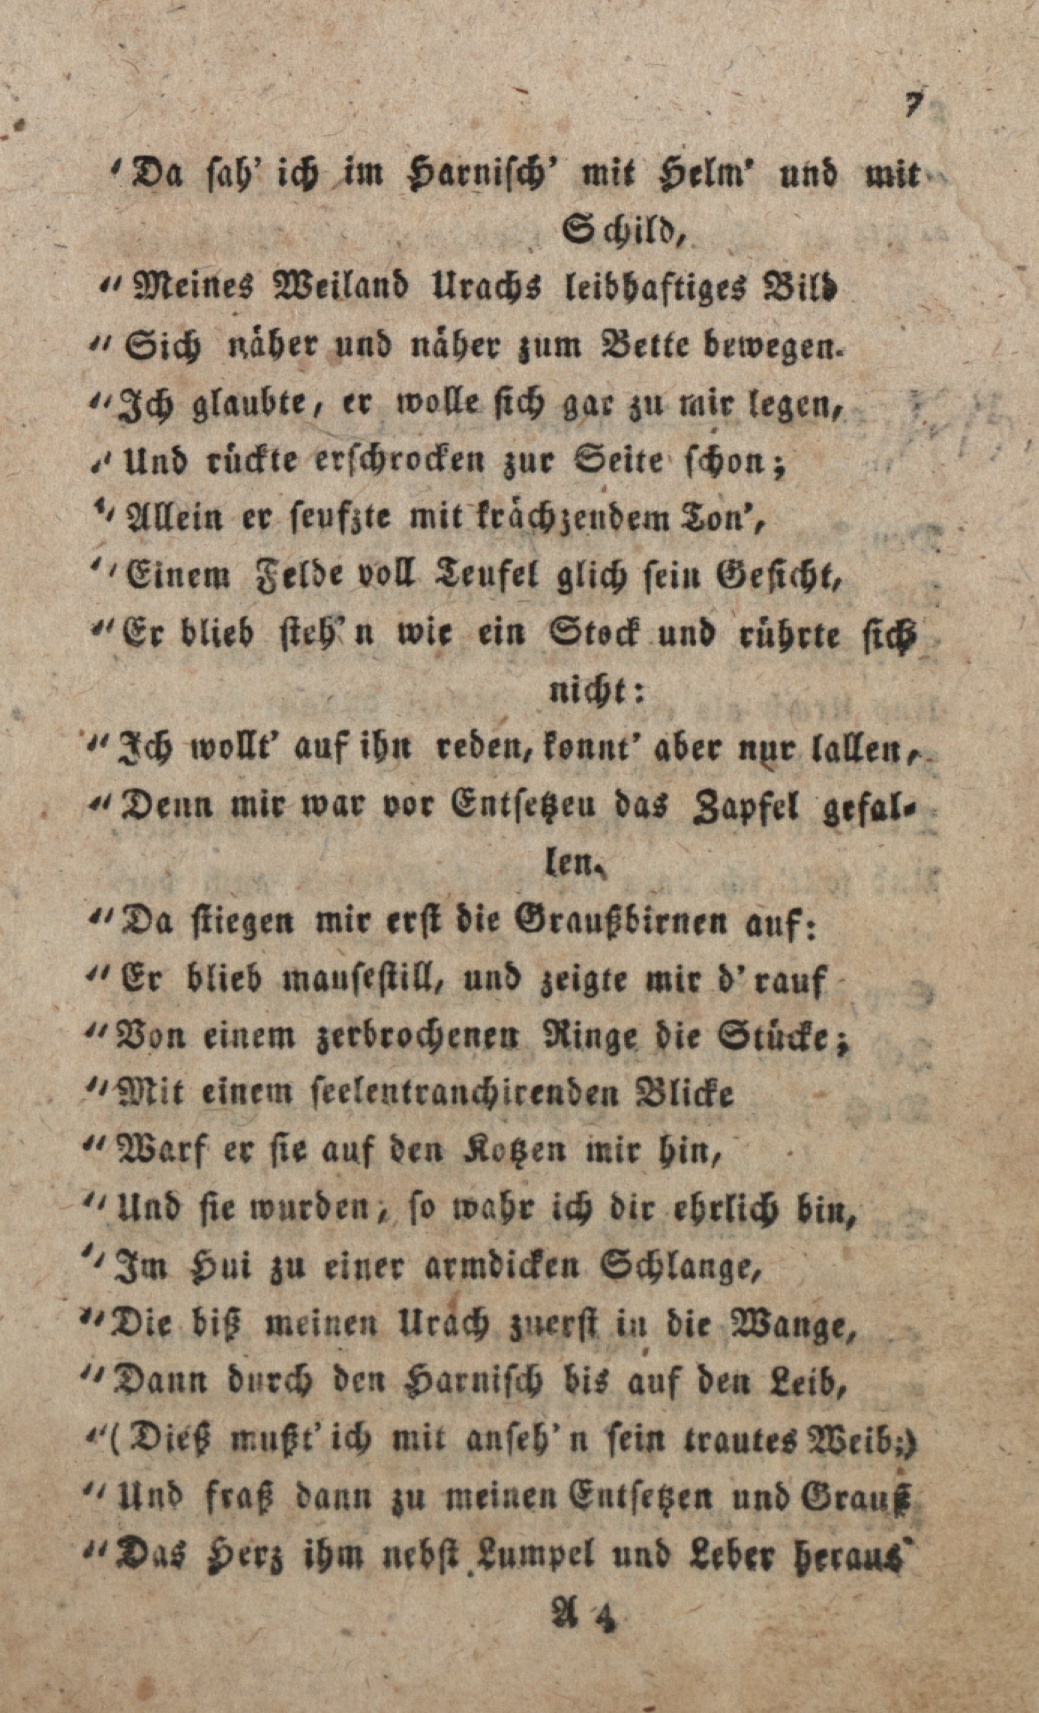 7
"Da sah' ich im Harnisch' mit Helm' und mit
Schild,
"Meines Weiland Urachs leibhaftiges Bild
"Sich näher und näher zum Bette bewegen.
"Ich glaubte, er wolle sich gar zu mir legen,
"Und rückte erschrocken zur Seite schon;
"Allein er seufzte mit krächzendem Ton',
"Einem Felde voll Teufel glich sein Gesicht,
"Er blieb steh'n wie ein Stock und rührte sich
nicht:
"Ich wollt' auf ihn reden, konnt' aber nur lallen,
"Denn mir war vor Entsetzen das Zapfel gefal-
len.
"Da stiegen mir erst die Graußbirnen auf:
"Er blieb mausestill, und zeigte mir d'rauf
"Von einem zerbrochenen Ringe die Stücke;
"Mit einem seelentranchirenden Blicke
"Warf er sie auf den Kotzen mir hin,
"Und sie wurden, so wahr ich dir ehrlich bin,
"Im Hui zu einer armdicken Schlange,
"Die biß meinen Urach zuerst in die Wange,
"Dann durch den Harnisch bis auf den Leib,
"(Dieß mußt' ich mit anseh'n sein trautes Weib;)
"Und fraß dann zu meinen Entsetzen und Grauß
"Das Herz ihm nebst Lumpel und Leber heraus
A 4